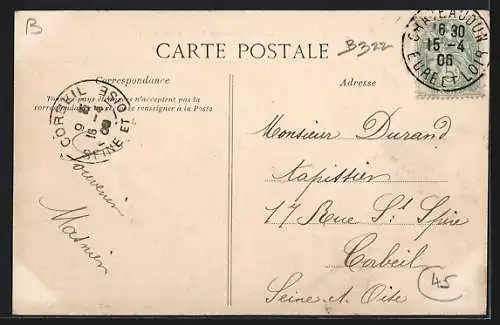 B
CARTE POSTALE
B322
CHATEAUDUN
16 30
15 - 4
06
EURE ET LOIR
Correspondance
Tous les pays étrangers n'acceptent pas la
correspondance se renseigner à la Poste
Adresse
CORBEIL
SEINE ET OISE
Souvenir
Monsieur Durand
tapissier
17 Rue St Spire
Corbeil
Seine et Oise
45